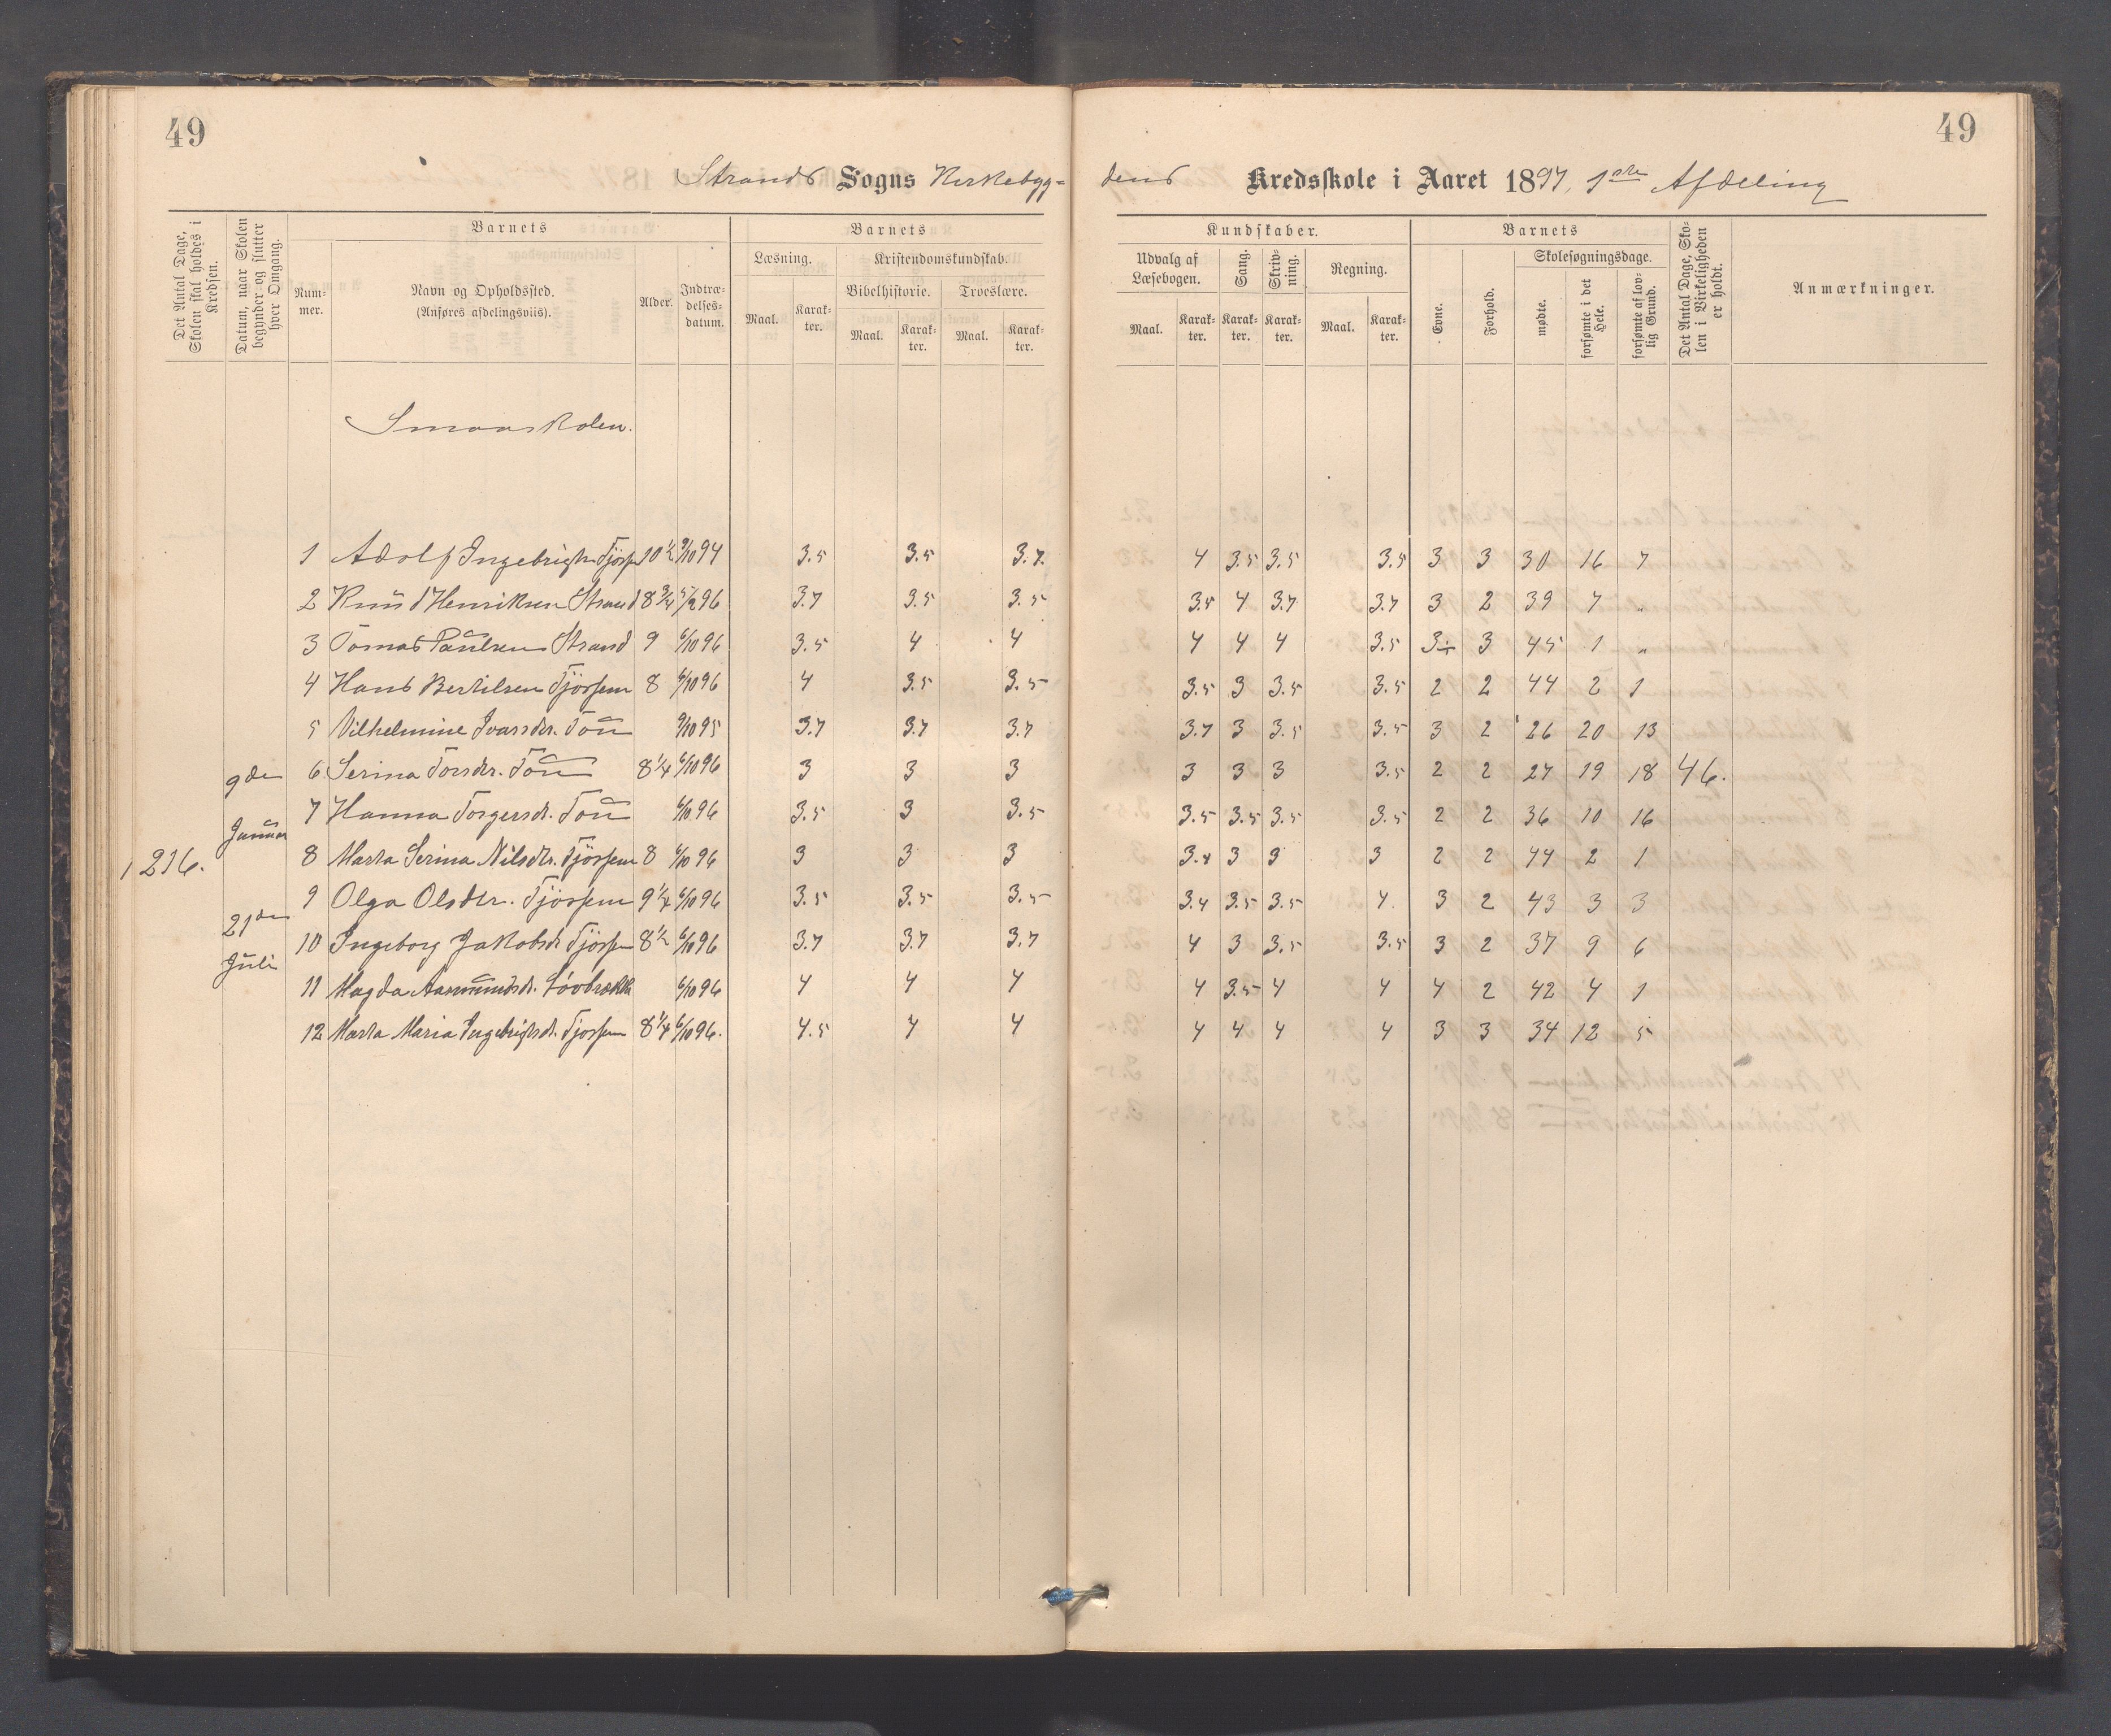 49
49
Strands Sogns Kirkebygg=
dens Kredsskole i Aaret 1897, 1ste Afdeling
Det Antal Dage, Skolen skal holdes i Kredsen.
Datum, naar Skolen begynder og slutter hver Omgang.
Barnets
Num-
mer.
Navn og Opholdssted.
(Anføres afdelingsviis).
Alder.
Indtræ-
delses-
datum.
Barnets
Læsning.
Maal.
Karak-
ter.
Kristendomskundskab.
Bibelhistorie.
Maal.
Karak-
ter.
Troeslære.
Maal.
Karak-
ter.
Kundskaber.
Udvalg af
Læsebogen.
Maal.
Karak-
ter.
Sang.
Karak-
ter.
Skriv-
ning.
Karak-
ter.
Regning.
Maal.
Karak-
ter.
Barnets
Evne.
Forhold.
Skolesøgningsdage.
mødte.
forsømte i det Hele.
forsømte af lov-
lig Grund.
Det Antal Dage, Sko-
len i Virkeligheden
er holdt.
Anmærkninger.
Smaaskolen.
1 Adolf Ingebrigts. Tjössem 10 1/2 9/10 94 3.5 3.5 3.7. 4 3.5 3.5 3.5 3 3 30 16 7
2 Knud Henriksen Strand 8 3/4 96 3.7 3.5 3.5 3.5 4 3.7 3.7 3 2 39 7 "
3 Tomas Paulsen Strand 9 6/10 96 3.5 4 4 4 4 4 3.5 3÷ 3 45 1 "
4 Hans Bertilsen Tjössem 8 6/10 96 4 3.5 3.5 3.5 3 3.5 3.5 2 2 44 2 1
5 Vilhelmine Ivarsdtr. Tou 9/10 95 3.7 3.7 3.7 3.7 3 3.5 3.5 3 2 26 20 13
9de 6 Serina Torsdtr. Tou 8 1/4 6/10 96 3 3 3 3 3 3 3.5 2 2 27 19 18 46.
7 Hanna Torgersdr. Tou 6/10 96 3.5 3 3.5 3.5 3.5 3.5 3.5 2 2 36 10 16
Januar
1 216. 8 Marta Serina Nilsdtr. Tjössem 8 6/10 96 3 3 3 3.4 3 3 3 2 2 44 2 1
9 Olga Olsdtr. Tjössem 9 1/4 6/10 96 3.5 3.5 3.5 3.4 3.5 3.5 4. 3 2 43 3 3
21de
10 Ingeborg Jakobsdr. Tjössem 8 1/2 6/10 96 3.7 3.7 3.7 4 3 3.5 3.5 3 2 37 9 6
Juli
11 Magda Aasmundsdr. Lövbrække 6/10 96 4 4 4 4 3.5 4 4 4 2 42 4 1
12 Marta Maria Ingebrigtsdr. Tjossem 8 1/4 6/10 96. 4.5 4 4 4 4 4 4 3 3 34 12 5